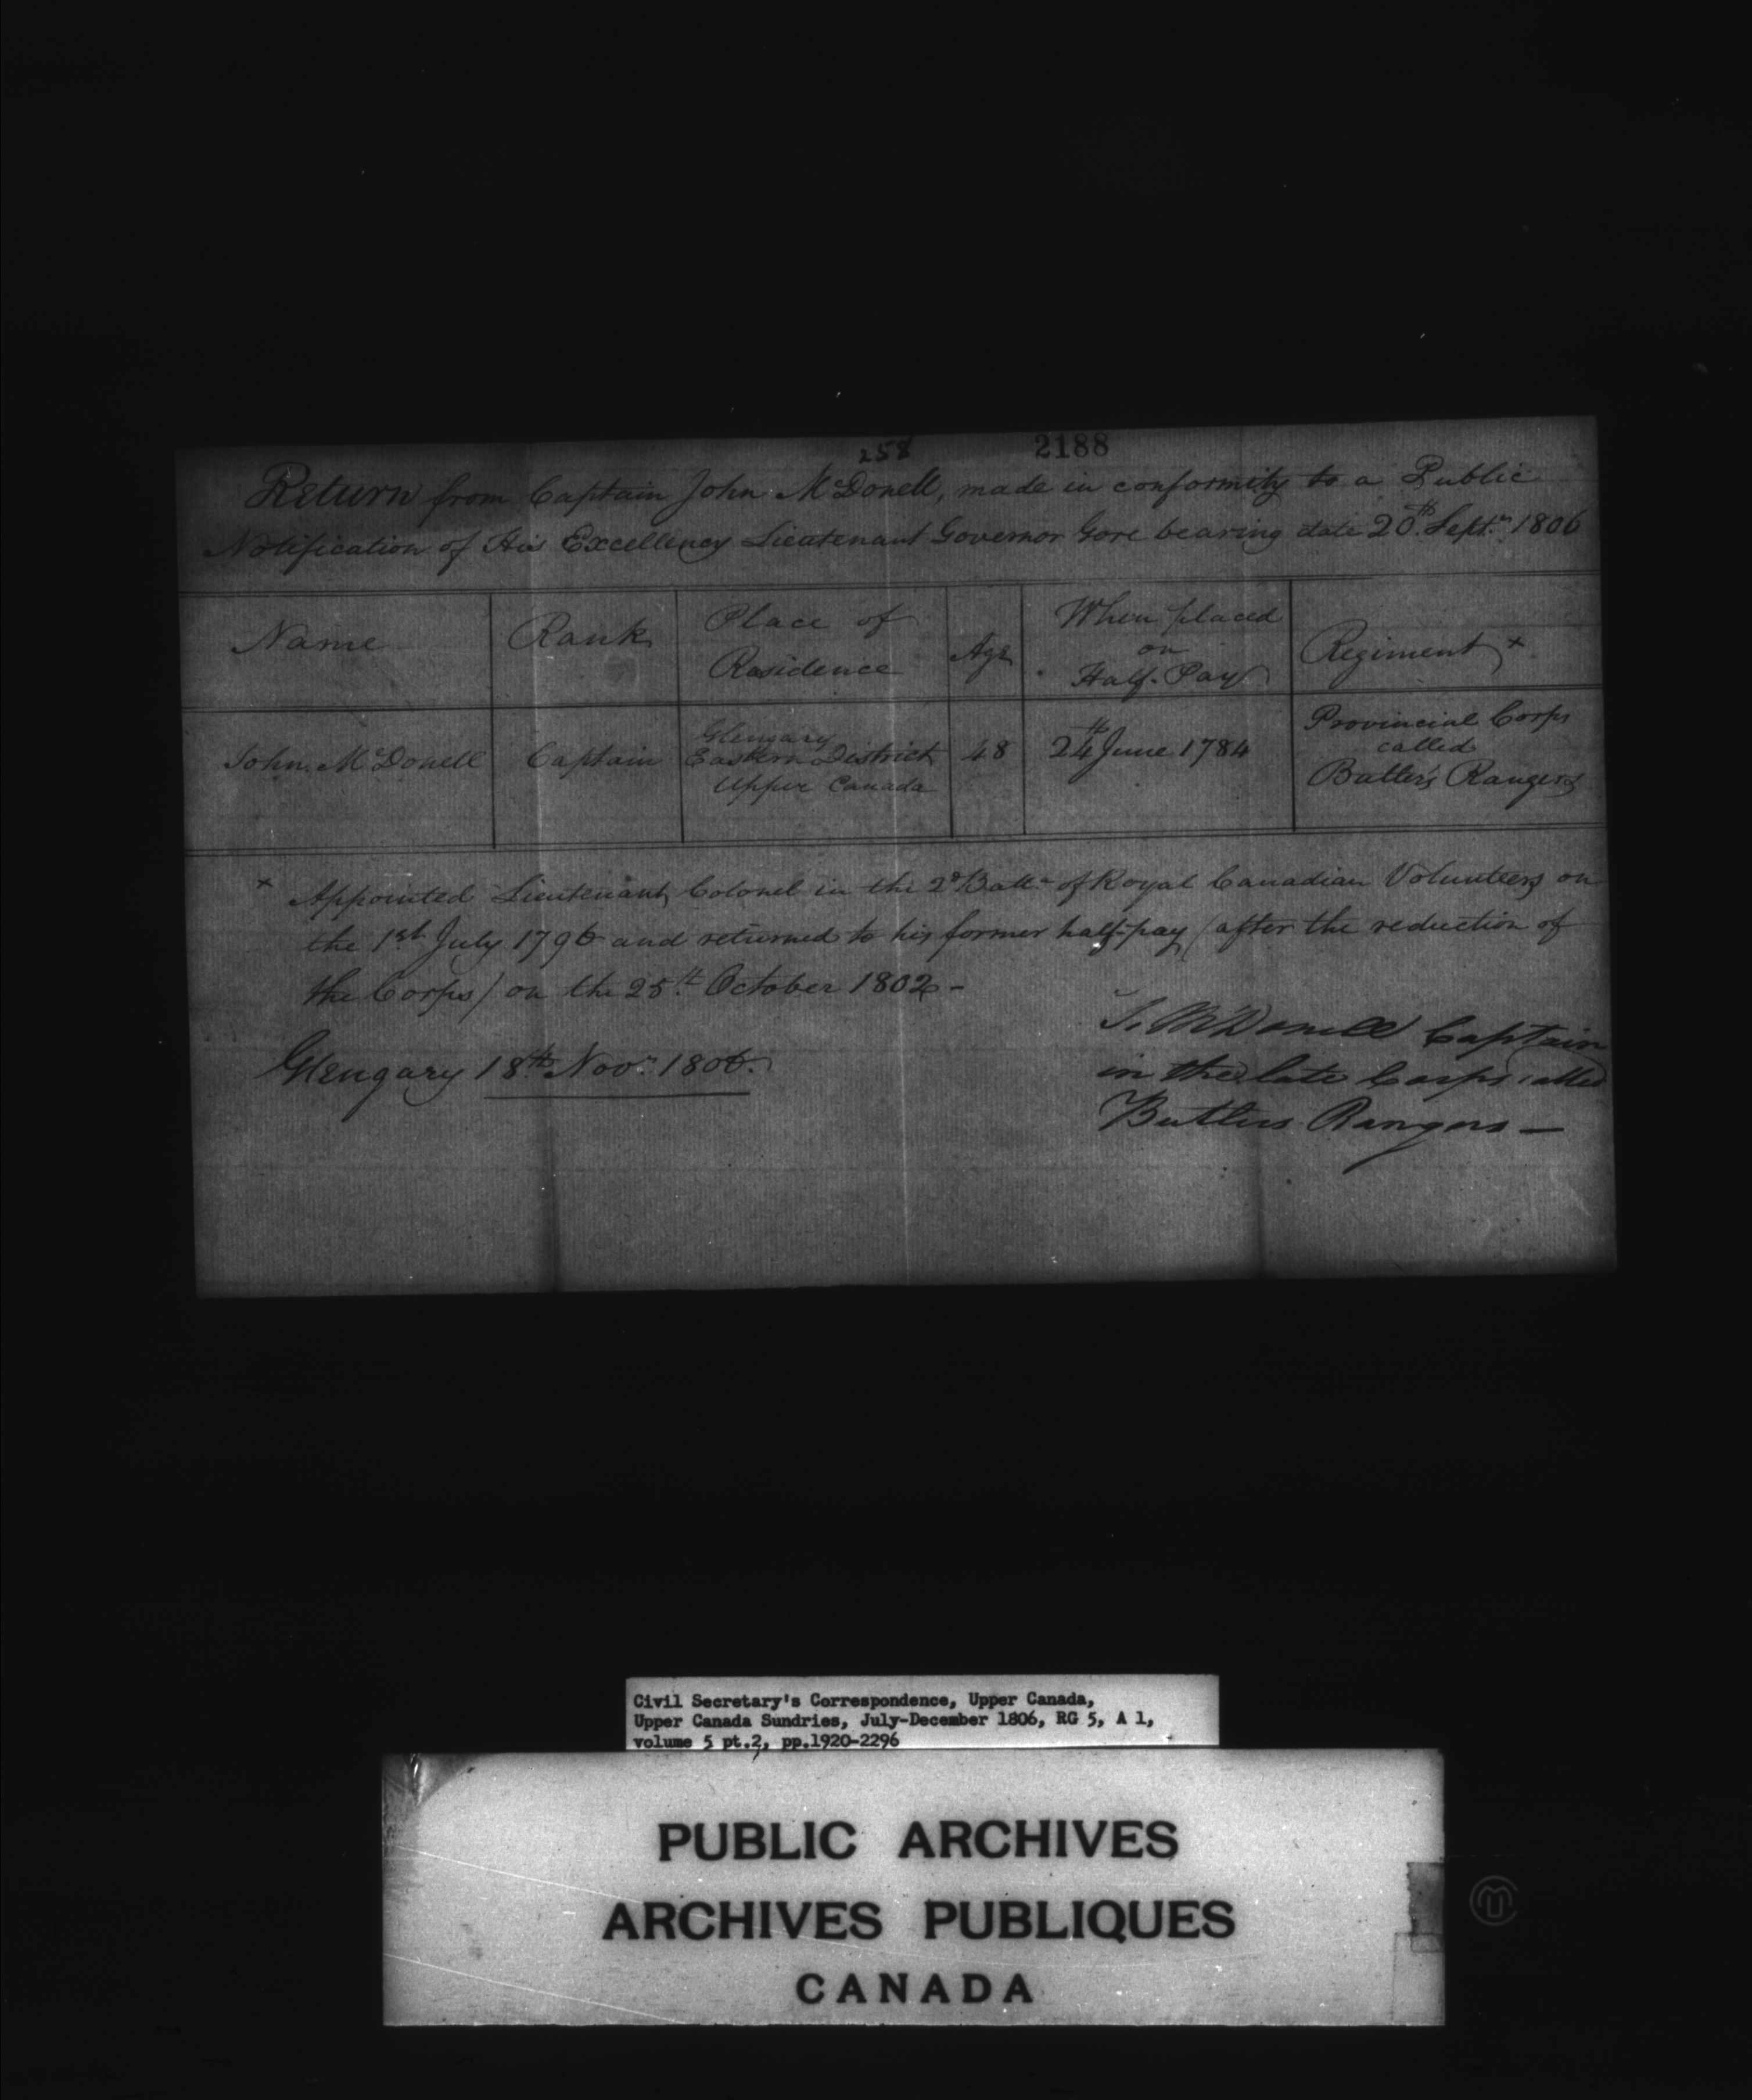 258 2188
Return from Captain John McDonell, made in conformity to a Public
Notification of His Excellency Lieutenant Governor Gore bearing date 20th. Septr. 1806
Name Rank Place of Residence Age When placed on Half-Pay Regiment x
John McDonell Captain Glengary Eastern District Upper Canada 48 24th June 1784 Provincial Corps called Butler's Rangers
x Appointed Lieutenant Colonel in the 2d Battn of Royal Canadian Volunteers on
the 1st July 1796 and returned to his former half-pay (after the reduction of
the Corps) on the 25th October 1802 -
J. McDonell Captain
in the late Corps called
Butlers Rangers —
Glengary 18th Novr. 1806.
Civil Secretary's Correspondence, Upper Canada,
Upper Canada Sundries, July-December 1806, RG 5, A 1,
volume 5 pt.2, pp.1920-2296
PUBLIC ARCHIVES
ARCHIVES PUBLIQUES
CANADA